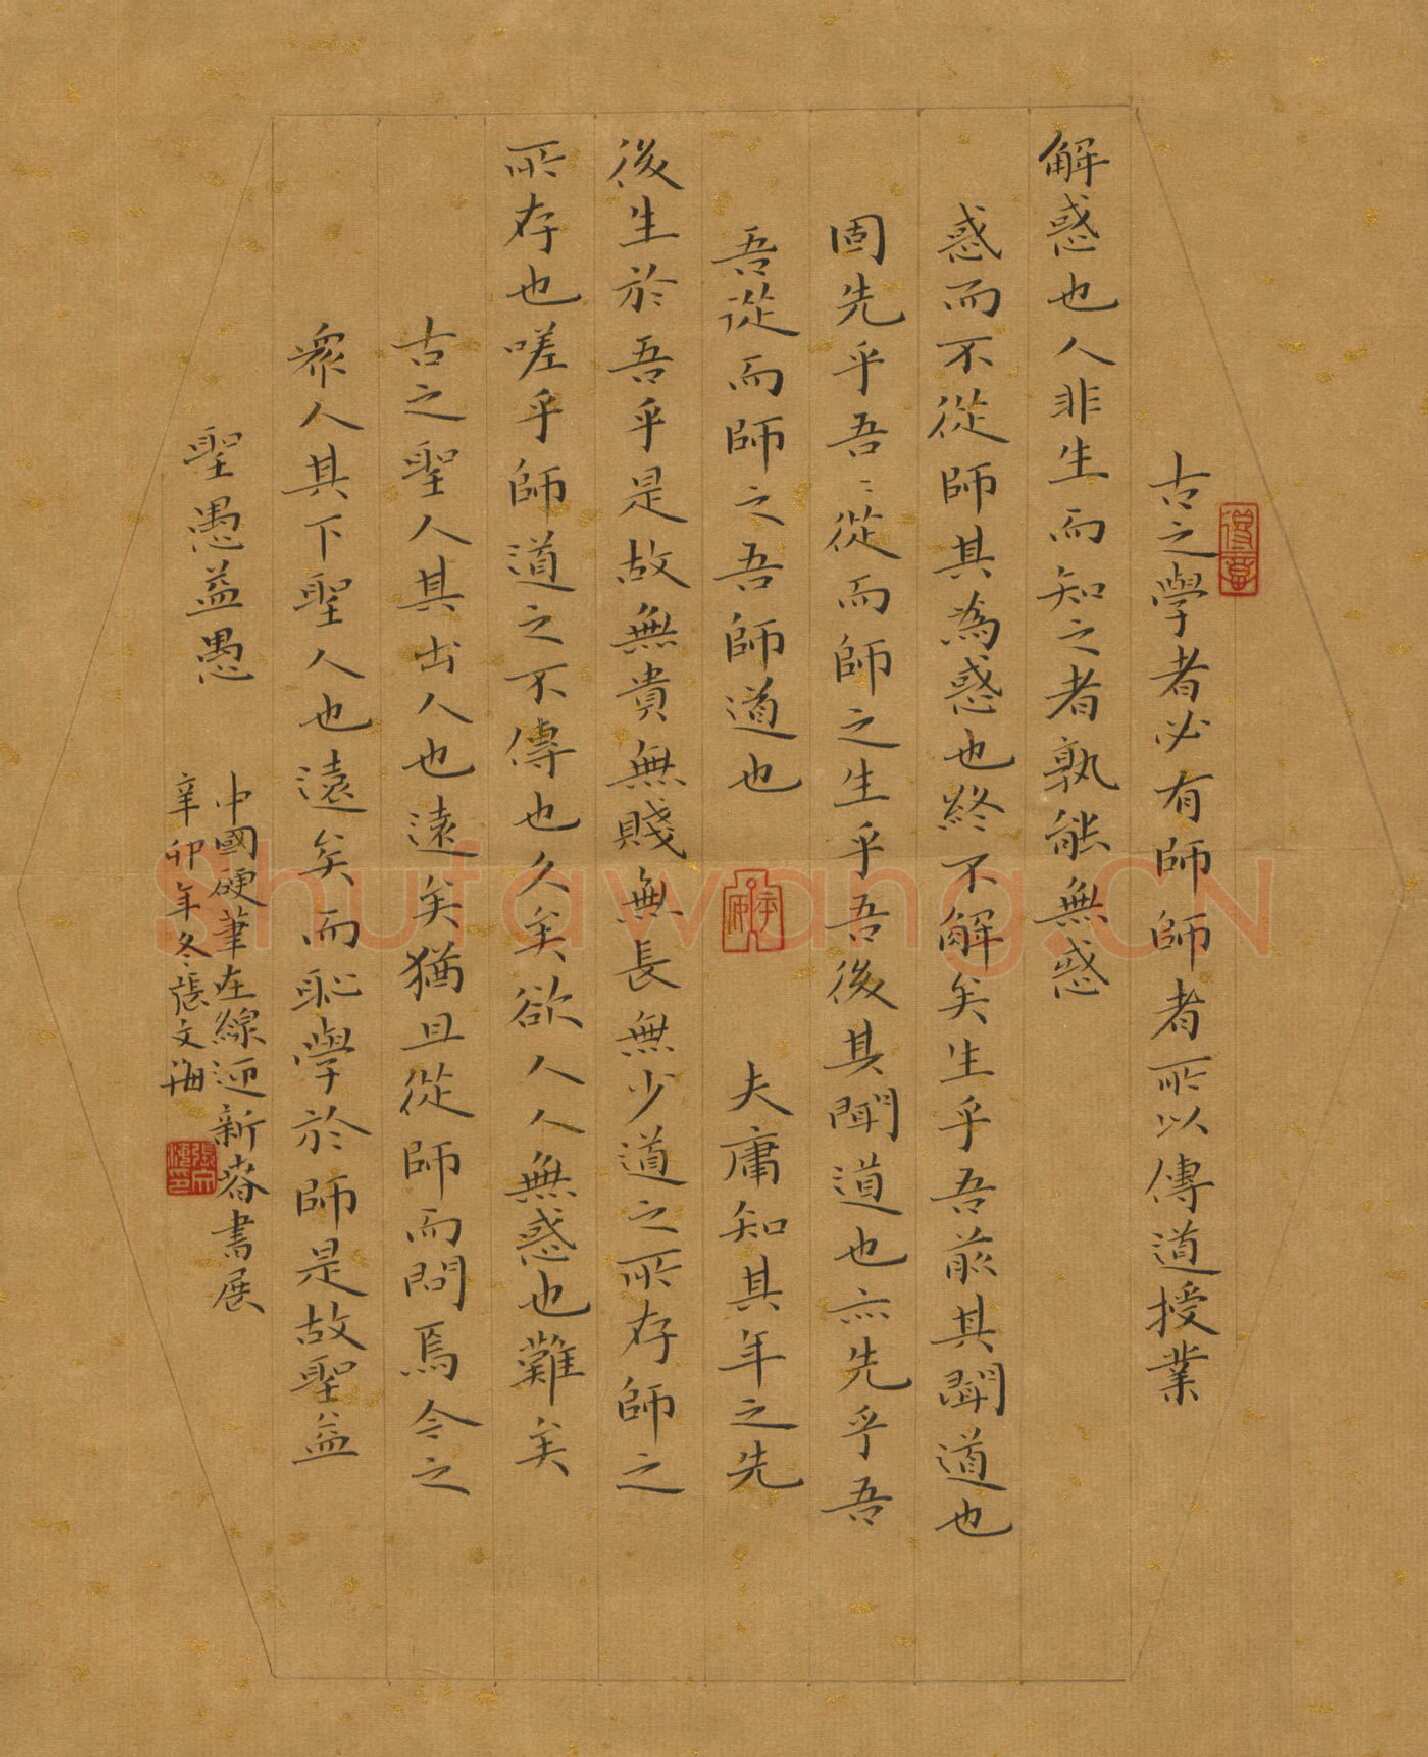 古之學者必有師師者所以傳道授業
解惑也人非生而知之者孰能無惑
惑而不從師其為惑也終不解矣生乎吾前其聞道也
固先乎吾〻從而師之生乎吾後其聞道也亦先乎吾
吾從而師之吾師道也 夫庸知其年之先
後生於吾乎是故無貴無賤無長無少道之所存師之
所存也嗟乎師道之不傳也久矣欲人人無惑也難矣
古之聖人其出人也遠矣猶且從師而問焉今之
衆人其下聖人也遠矣而恥學於師是故聖益
聖愚益愚
中國硬筆在線迎新春書展
辛卯年冬張文海
張文海印
Shufawang.CN